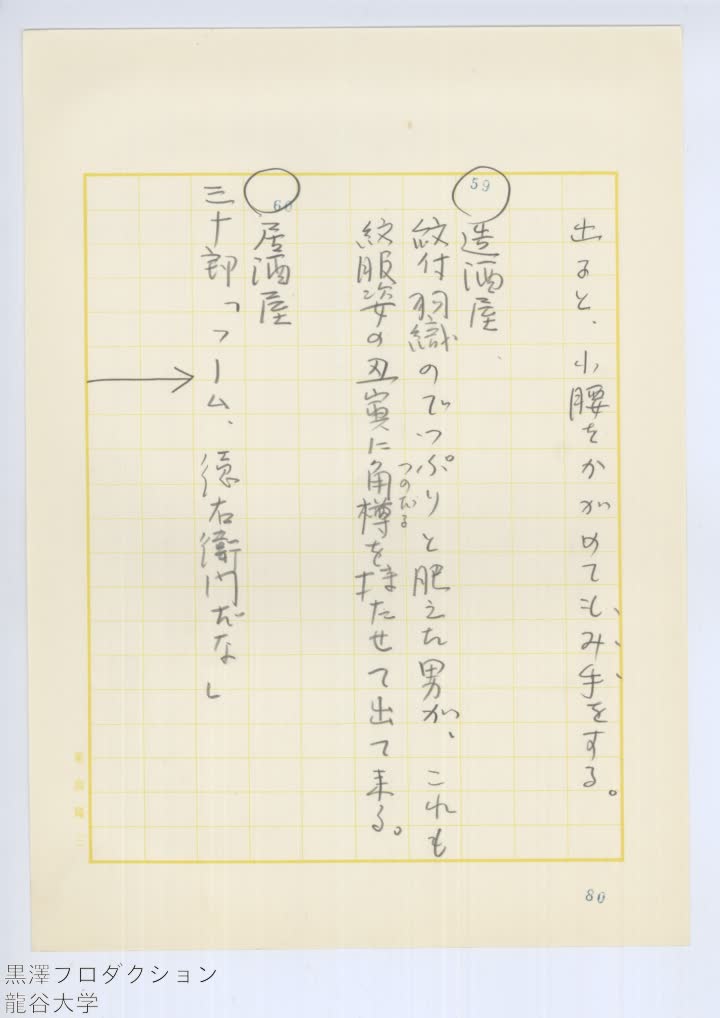 出ると、小腰をかがめてもみ手をする。
59
造酒屋
紋付羽織のでっぷりと肥えた男が、これも
紋服姿の丑寅に角樽を持たせて出て来る。
つのだる
60
居酒屋
三十郎「フーム、徳右衛門だな」
80
黒澤プロダクション
龍谷大学